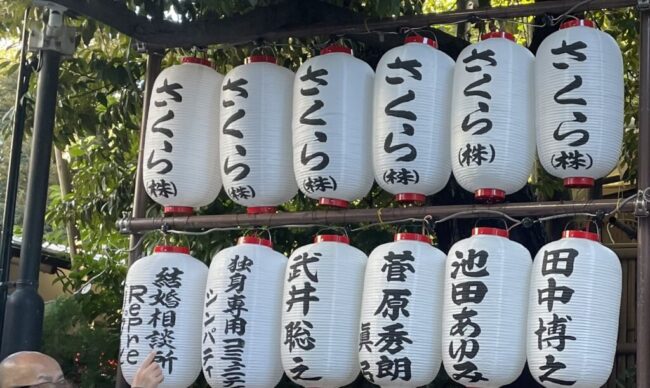 さくら
(株)
さくら
(株)
さくら
(株)
さくら
(株)
さくら
(株)
さくら
(株)
田中博之
池田あゆみ
菅原秀朗
武井聡之
独身専用コミュニティ
シンパティ
結婚相談所